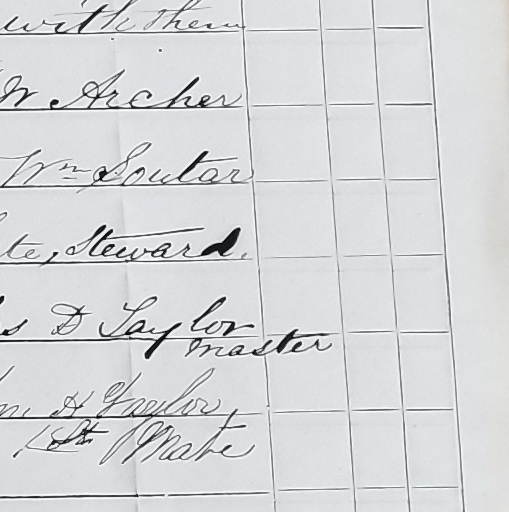 with them
W Archer
Wm Soutar
te, Steward.
s D Taylor
master
m H Taylor,
1st Mate